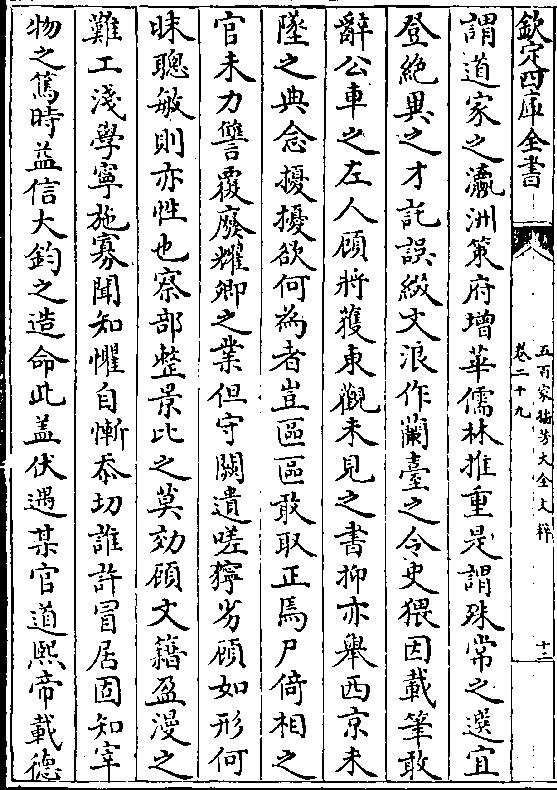 欽定四庫全書
五百家播芳大全文粹
卷二十九
十二
謂道家之瀛洲策府增華儒林推重是謂殊常之選宜
登絶異之才託誤綴文浪作蘭臺之令史猥因載筆敢
辭公車之左人顧將獲東觀未見之書抑亦舉西京未
墜之典念擾擾欲何為者豈區區敢取正焉尸倚相之
官未力讐覆廢耀卿之業但守闕遺嗟獰劣顧如形何
昧聰敏則亦性也察部整景比之莫効顧文籍盈漫之
難工淺學寧施寡聞知懼自慚忝切誰許冒居固知宰
物之篤時益信大鈞之造命此盖伏遇某官道熙帝載德